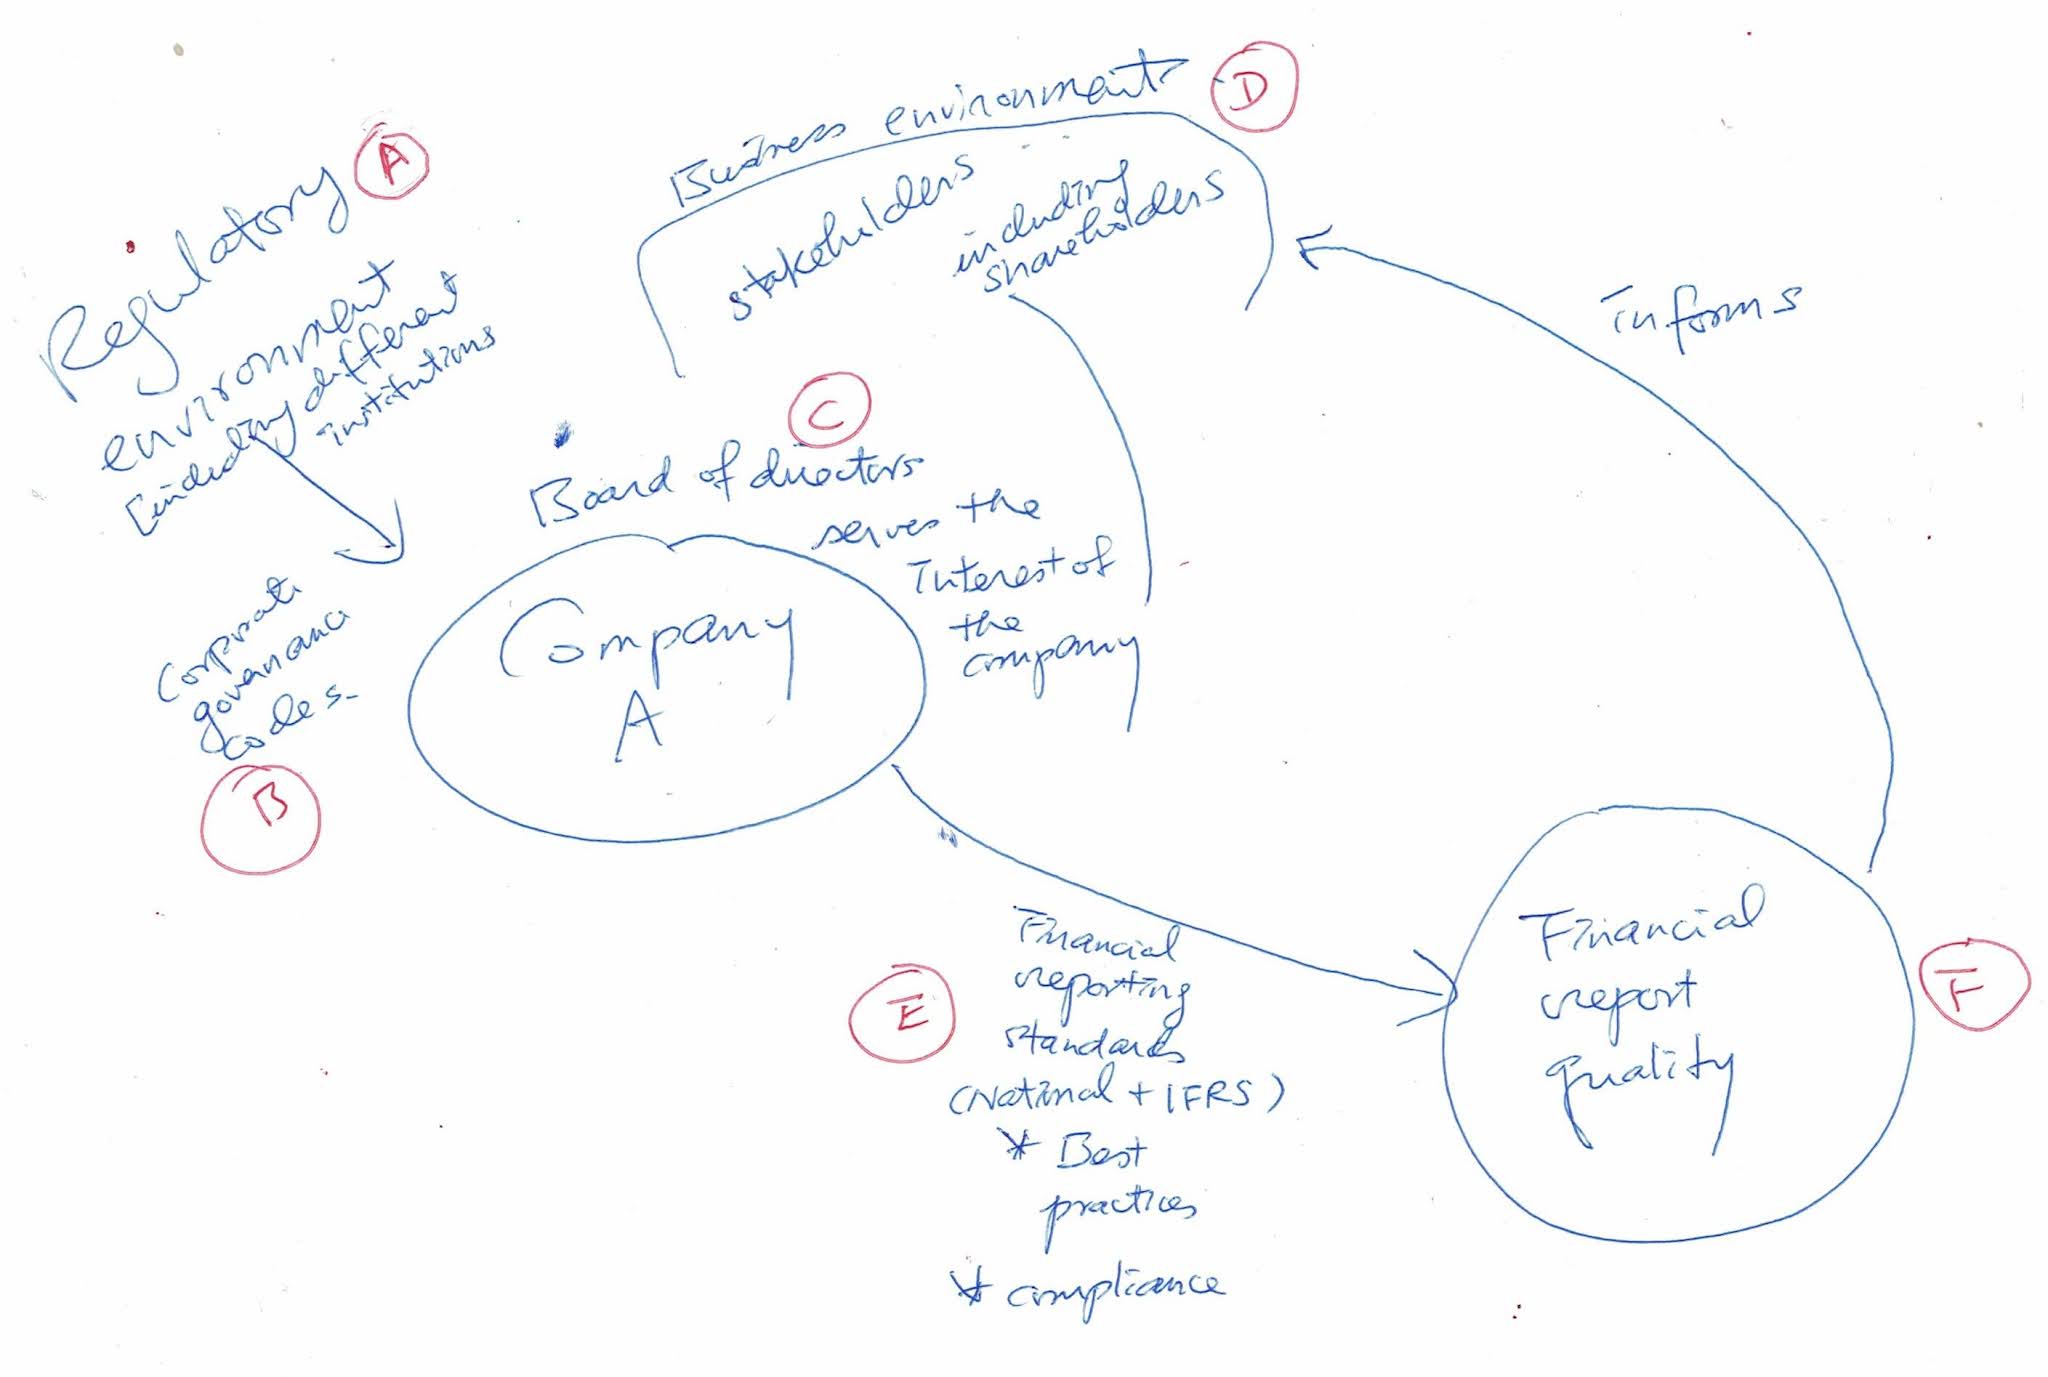 Regulatory
A
environment
[including different
institutions
Business environment
D
stakeholders
including
shareholders
informs
C
Board of directors
serves the
Interest of
the
company
Corporate
governance
codes-
B
Company
A
Financial
reporting
standards
(National + IFRS)
* Best
practices
* compliance
E
Financial
report
quality
F